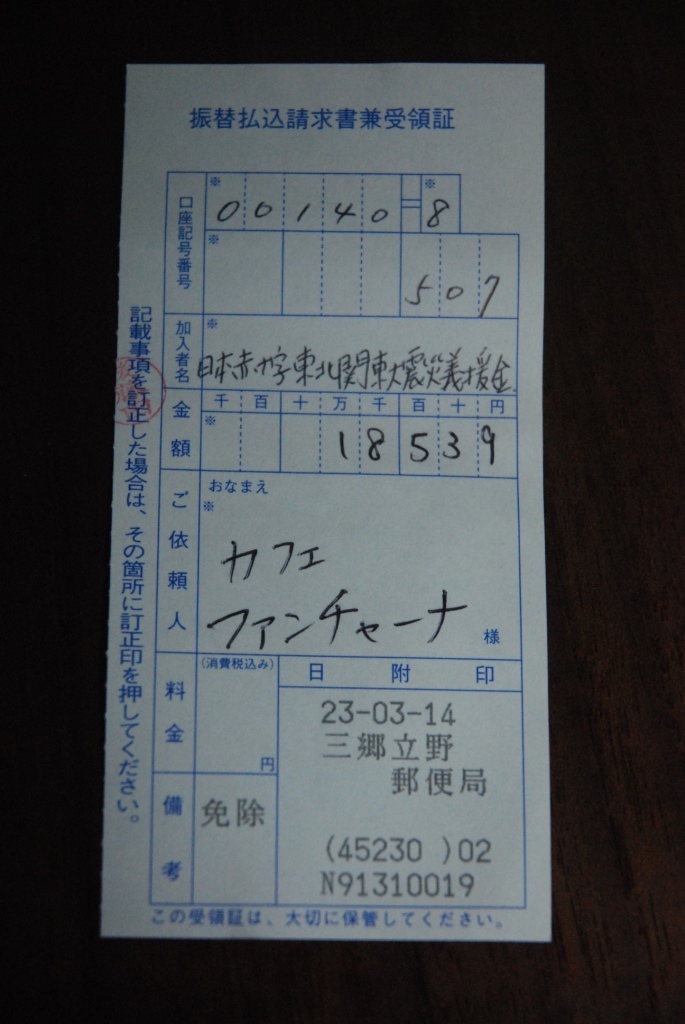 振替払込請求書兼受領証
口座記号番号
※ ※
00140=8
※
507
加入者名
※
日本赤十字東北関東大震災義援金
金額
千百十万千百十円
※
18539
ご依頼人
おなまえ
※
カフェ
ファンチャーナ
様
料金
(消費税込み)
円
備考
免除
日附印
23-03-14
三郷立野
郵便局
(45230 )02
N91310019
記載事項を訂正した場合は、その箇所に訂正印を押してください。
この受領証は、大切に保管してください。